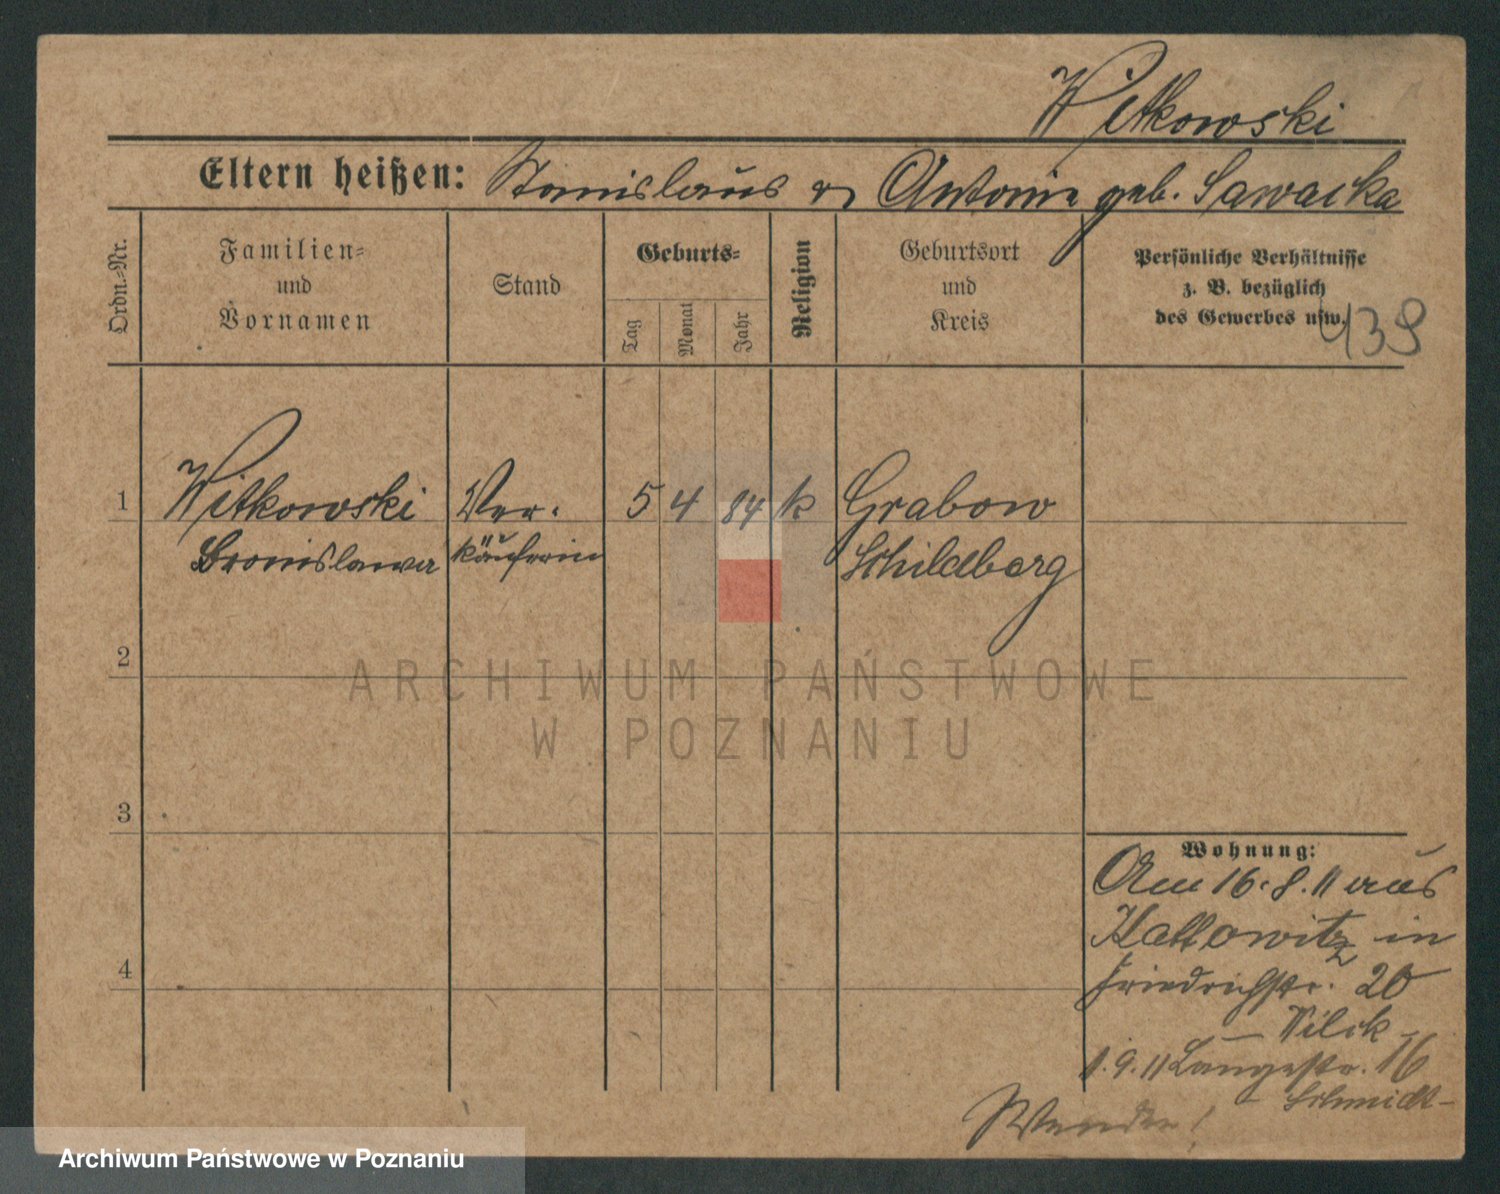 Witkowski
Eltern heißen: Stanislaus u Antonie geb. Sawacka
Ordn.-Nr.
Familien-
und
Vornamen
Stand
Geburts-
Tag
Monat
Jahr
Religion
Geburtsort
und
Kreis
Persönliche Verhältnisse
z. B. bezüglich
des Gewerbes usw.
139
1 Witkowski Ver- 5 4 84 k Grabow
Bronislawa käuferin Schildberg
2
3
4
Wohnung:
Am 16.8.11 aus
Kattowitz in
Friedrichstr. 20
– Wilck –
1.9.11 Langestr. 16
– Schmidt –
Wenden!
ARCHIWUM PAŃSTWOWE
W POZNANIU
Archiwum Państwowe w Poznaniu